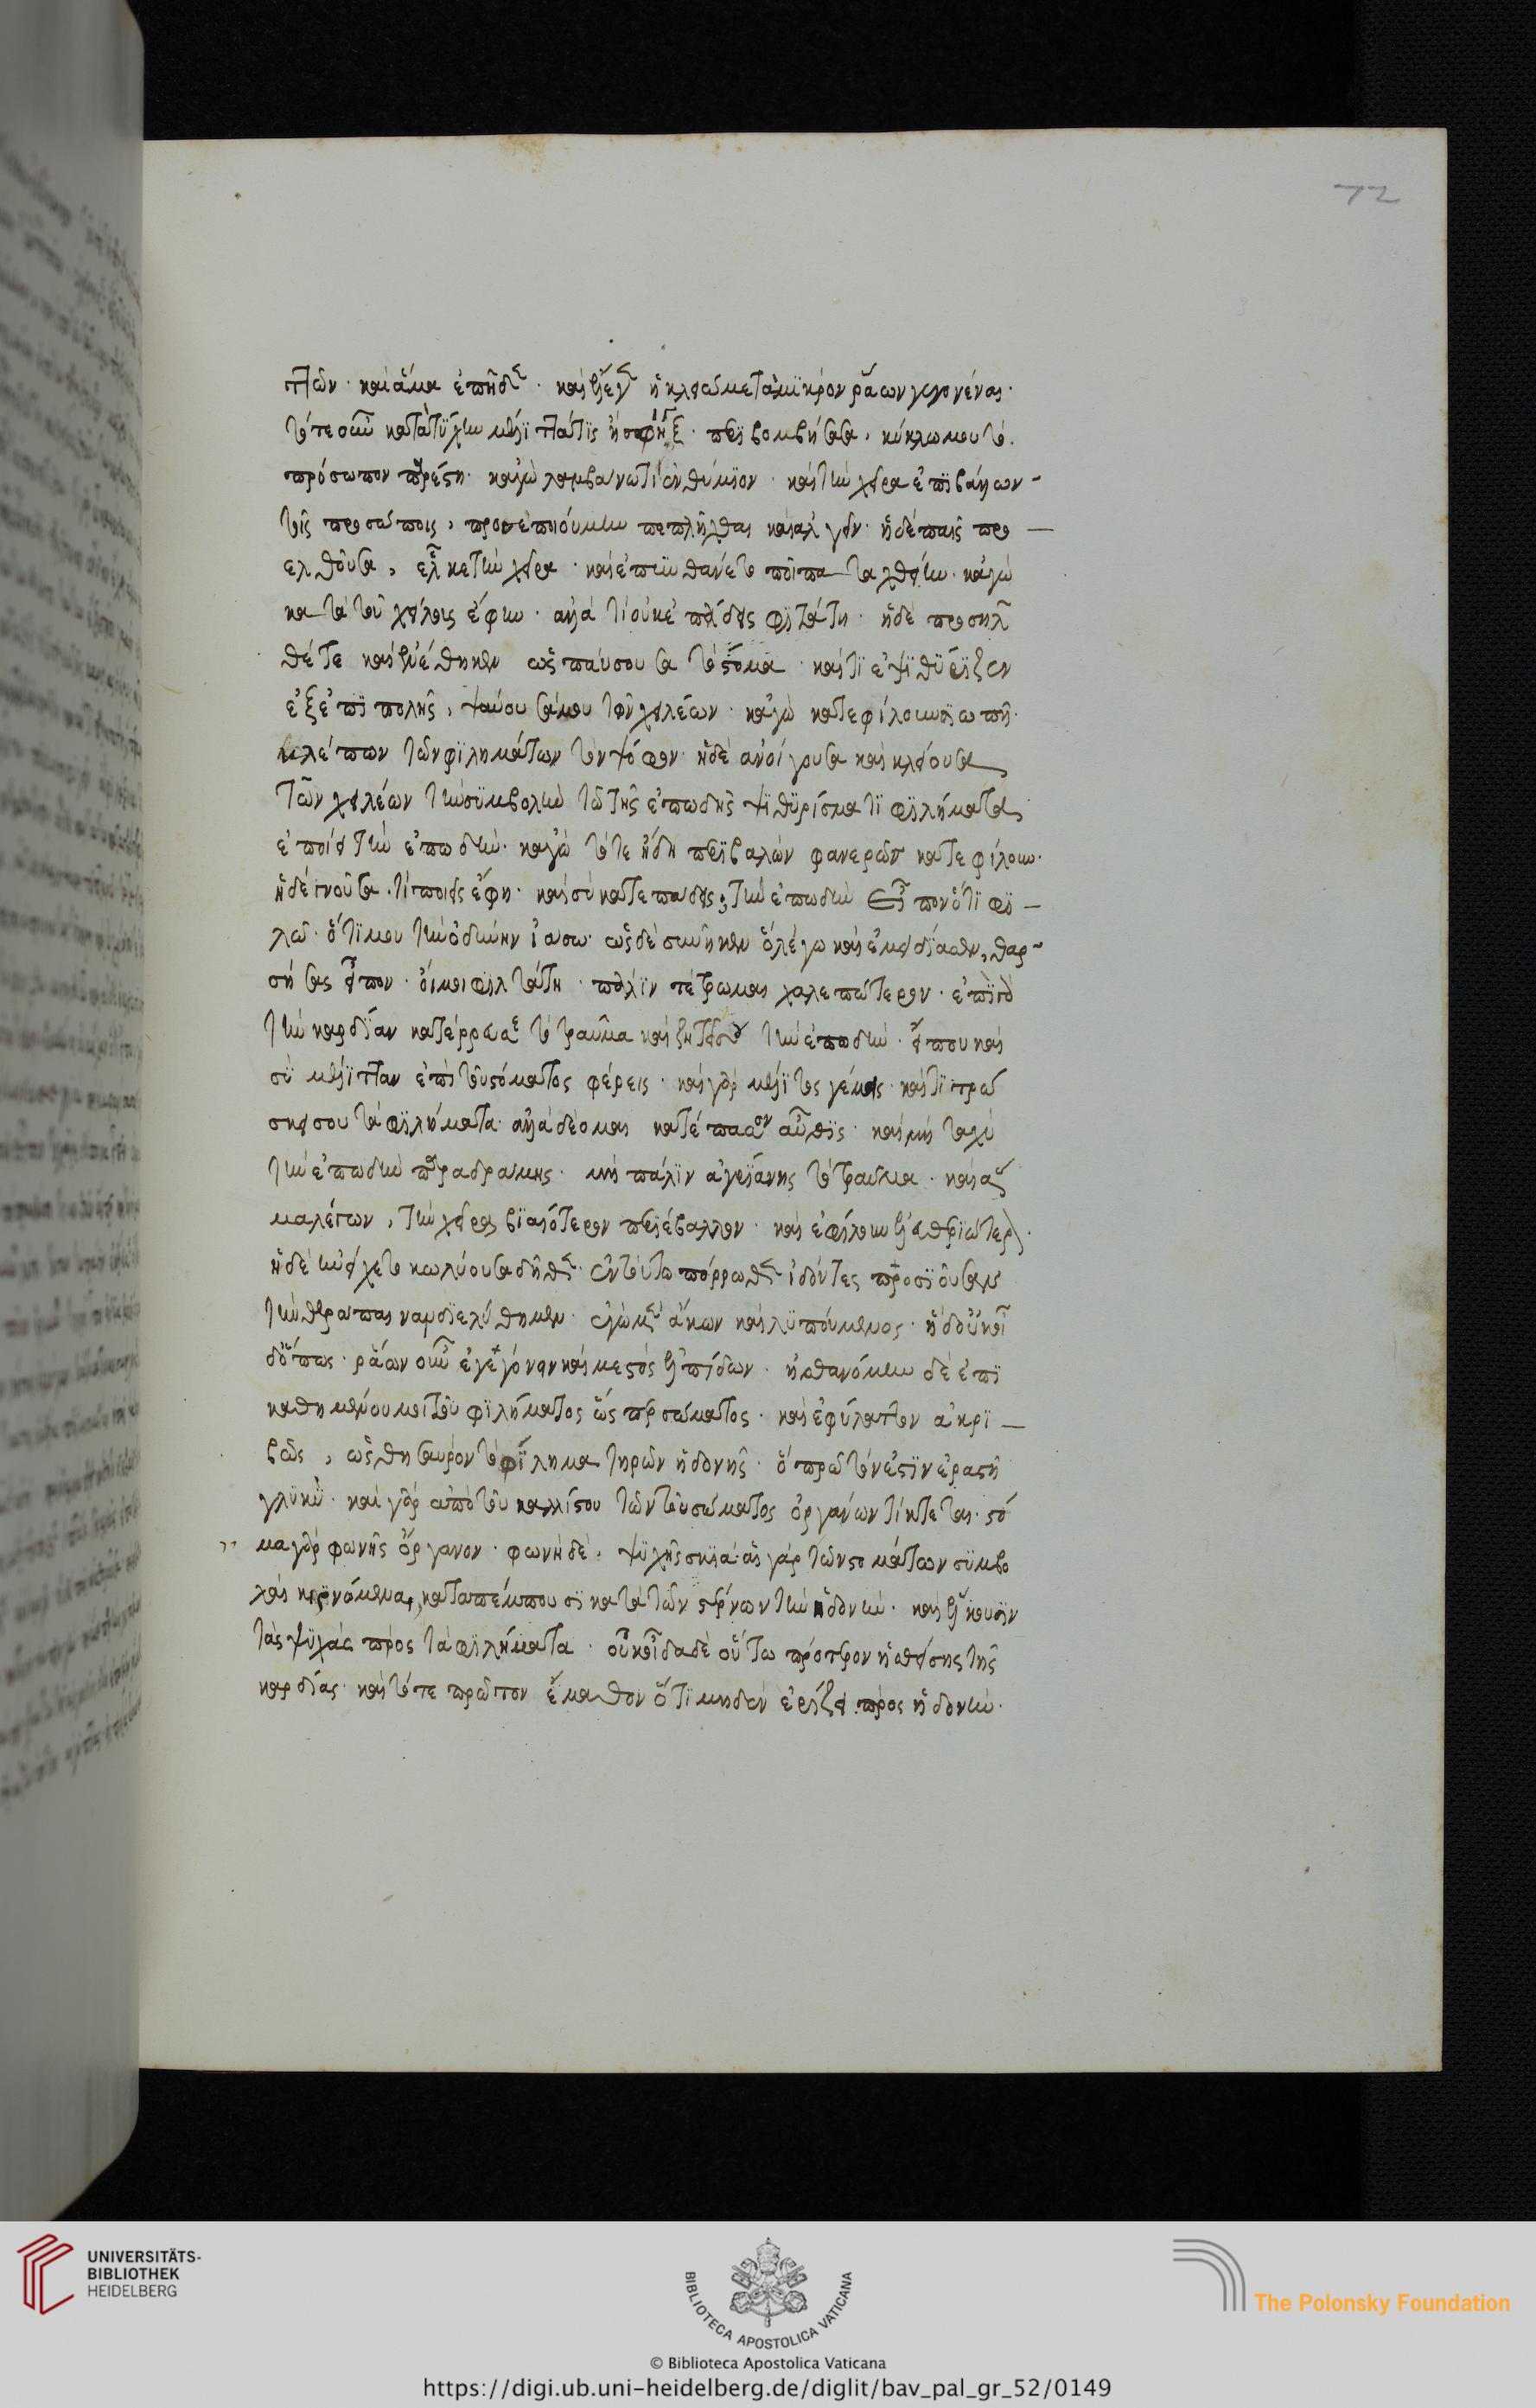 πτων· καὶ ἅμα ἐπῆδεν· καὶ ἔλεγεν ἡ κλειὼ μετὰ μϊκρὸν ῥάων γεγονέναι·
τότε οὖν κατὰ τύχην μέλϊττά τϊς ἢ σφὴξ· περϊβομβήσασα, κύκλω μου τὸ
πρόσωπον παρέστη· κἀγὼ λαμβάνω τὶ ἐνθύμϊον· καὶ τὴν χεῖρα ἐπϊβαλὼν
τοῖς προσώποις, προσεποιούμην πεπλῆχθαι καὶ ἀλγεῖν· ἡ δὲ παῖς προ
ελθοῦσα, εἷλκε τὴν χεῖρα· καὶ ἐπυνθάνετο ποῖ παταχθείην· κἀγὼ
κατὰ τοῦ χείλους ἔφην· ἀλλὰ τί οὐκ ἐπάδεις φϊλτάτη· ἡ δὲ προσῆλ
θέ τε καὶ ἐνέθηκεν ὡς παύσουσα τὸ στόμα· καὶ τϊ ἐψϊθύρϊζεν
ἐξ ἐπϊπολῆς, ψαύουσά μου τῶν χειλέων· κἀγὼ κατεφίλουν σϊωπῆ·
κλέπτων τῶν φϊλημάτων τὸν ψόφον· ἡ δὲ ἀνοίγουσα καὶ κλείουσα
τῶν χειλέων τὴν συμβολὴν τῶ τῆς ἐπωδῆς ψϊθυρίσματϊ φϊλήματα
ἐποίει τὴν ἐπωδήν· κἀγὼ τότε ἤδη περϊβαλὼν φανερῶς κατεφίλουν·
ἡ δὲ γνοῦσα· τί ποιεῖς ἔφη· καὶ σὺ κατεπάδεις; τὴν ἐπωδὴν εἶπον ὅτϊ φϊ
λῶ· ὅτϊ μου τὴν ὀδύνην ἰάσω· ὡς δὲ συνῆκεν ὃ λέγω καὶ ἐμειδίασεν, θαρ
σήσας εἶπον· οἴμοι φϊλτάτη· πάλϊν τέτρωμαι χαλεπώτερον· ἐπὶ γὰρ
τὴν καρδίαν κατέρρευσε τὸ τραῦμα καὶ ζητεῖ σου τὴν ἐπωδὴν· ἦ που καὶ
σὺ μέλϊτταν ἐπὶ τοῦ στόματος φέρεις· καὶ γὰρ μέλϊτος γέμεις· καὶ τϊτρώ
σκει σου τὰ φϊλήματα· ἀλλὰ δέομαι κατέπασον αὖθϊς· καὶ μὴ ταχὺ
τὴν ἐπωδὴν παραδράμης· μὴ πάλϊν ἀγρϊάνης τὸ τραῦμα· καὶ ἅ
μα λέγων, τὴν χεῖρα βϊαιότερον περϊέβαλλον· καὶ ἐφίλουν ἐλευθερϊώτερον·
ἡ δὲ ἠνείχετο κωλύουσα δῆθεν· ἐν τούτω πόρρωθεν ἰδόντες προσϊοῦσαν
τὴν θεράπαιναν δϊελύθημεν· ἐγὼ μὲν ἄκων καὶ λυπούμενος· ἡ δ' οὐκ οἶ
δ' ὅπως· ῥάων οὖν ἐγεγόνειν καὶ μεστὸς ἐλπίδων· ἠσθανόμην δὲ ἐπϊ
καθημένου μοι τοῦ φϊλήματος ὡς σώματος· καὶ ἐφύλαττον ἀκρϊ
βῶς, ὡς θησαυρὸν τὸ φίλημα τηρῶν ἡδονῆς· ὃ πρῶτόν ἐστϊν ἐραστῆ
γλυκὺ· καὶ γὰρ ἀπὸ τοῦ καλλίστου τῶν τοῦ σώματος ὀργάνων τίκτεται· στό
μα γὰρ φωνῆς ὄργανον· φωνὴ δὲ, ψυχῆς σκϊά· αἱ γὰρ τῶν στομάτων συμβο
λαὶ κιρνάμεναι, καταπέμπουσϊ κατὰ τῶν στέρνων τὴν ἡδονήν· καὶ ἕλκουσϊν
τὰς ψυχὰς πρὸς τὰ φϊλήματα· οὐκ οἶδα δὲ οὕτω πρότερον ἡσθεὶς ἐκ τῆς
καρδίας· καὶ τότε πρῶτον ἔμαθον ὅτϊ μηδὲν ἐρίζει πρὸς ἡδονήν·
72
UNIVERSITÄTS-
BIBLIOTHEK
HEIDELBERG
BIBLIOTECA APOSTOLICA VATICANA
The Polonsky Foundation
© Biblioteca Apostolica Vaticana
https://digi.ub.uni-heidelberg.de/diglit/bav_pal_gr_52/0149